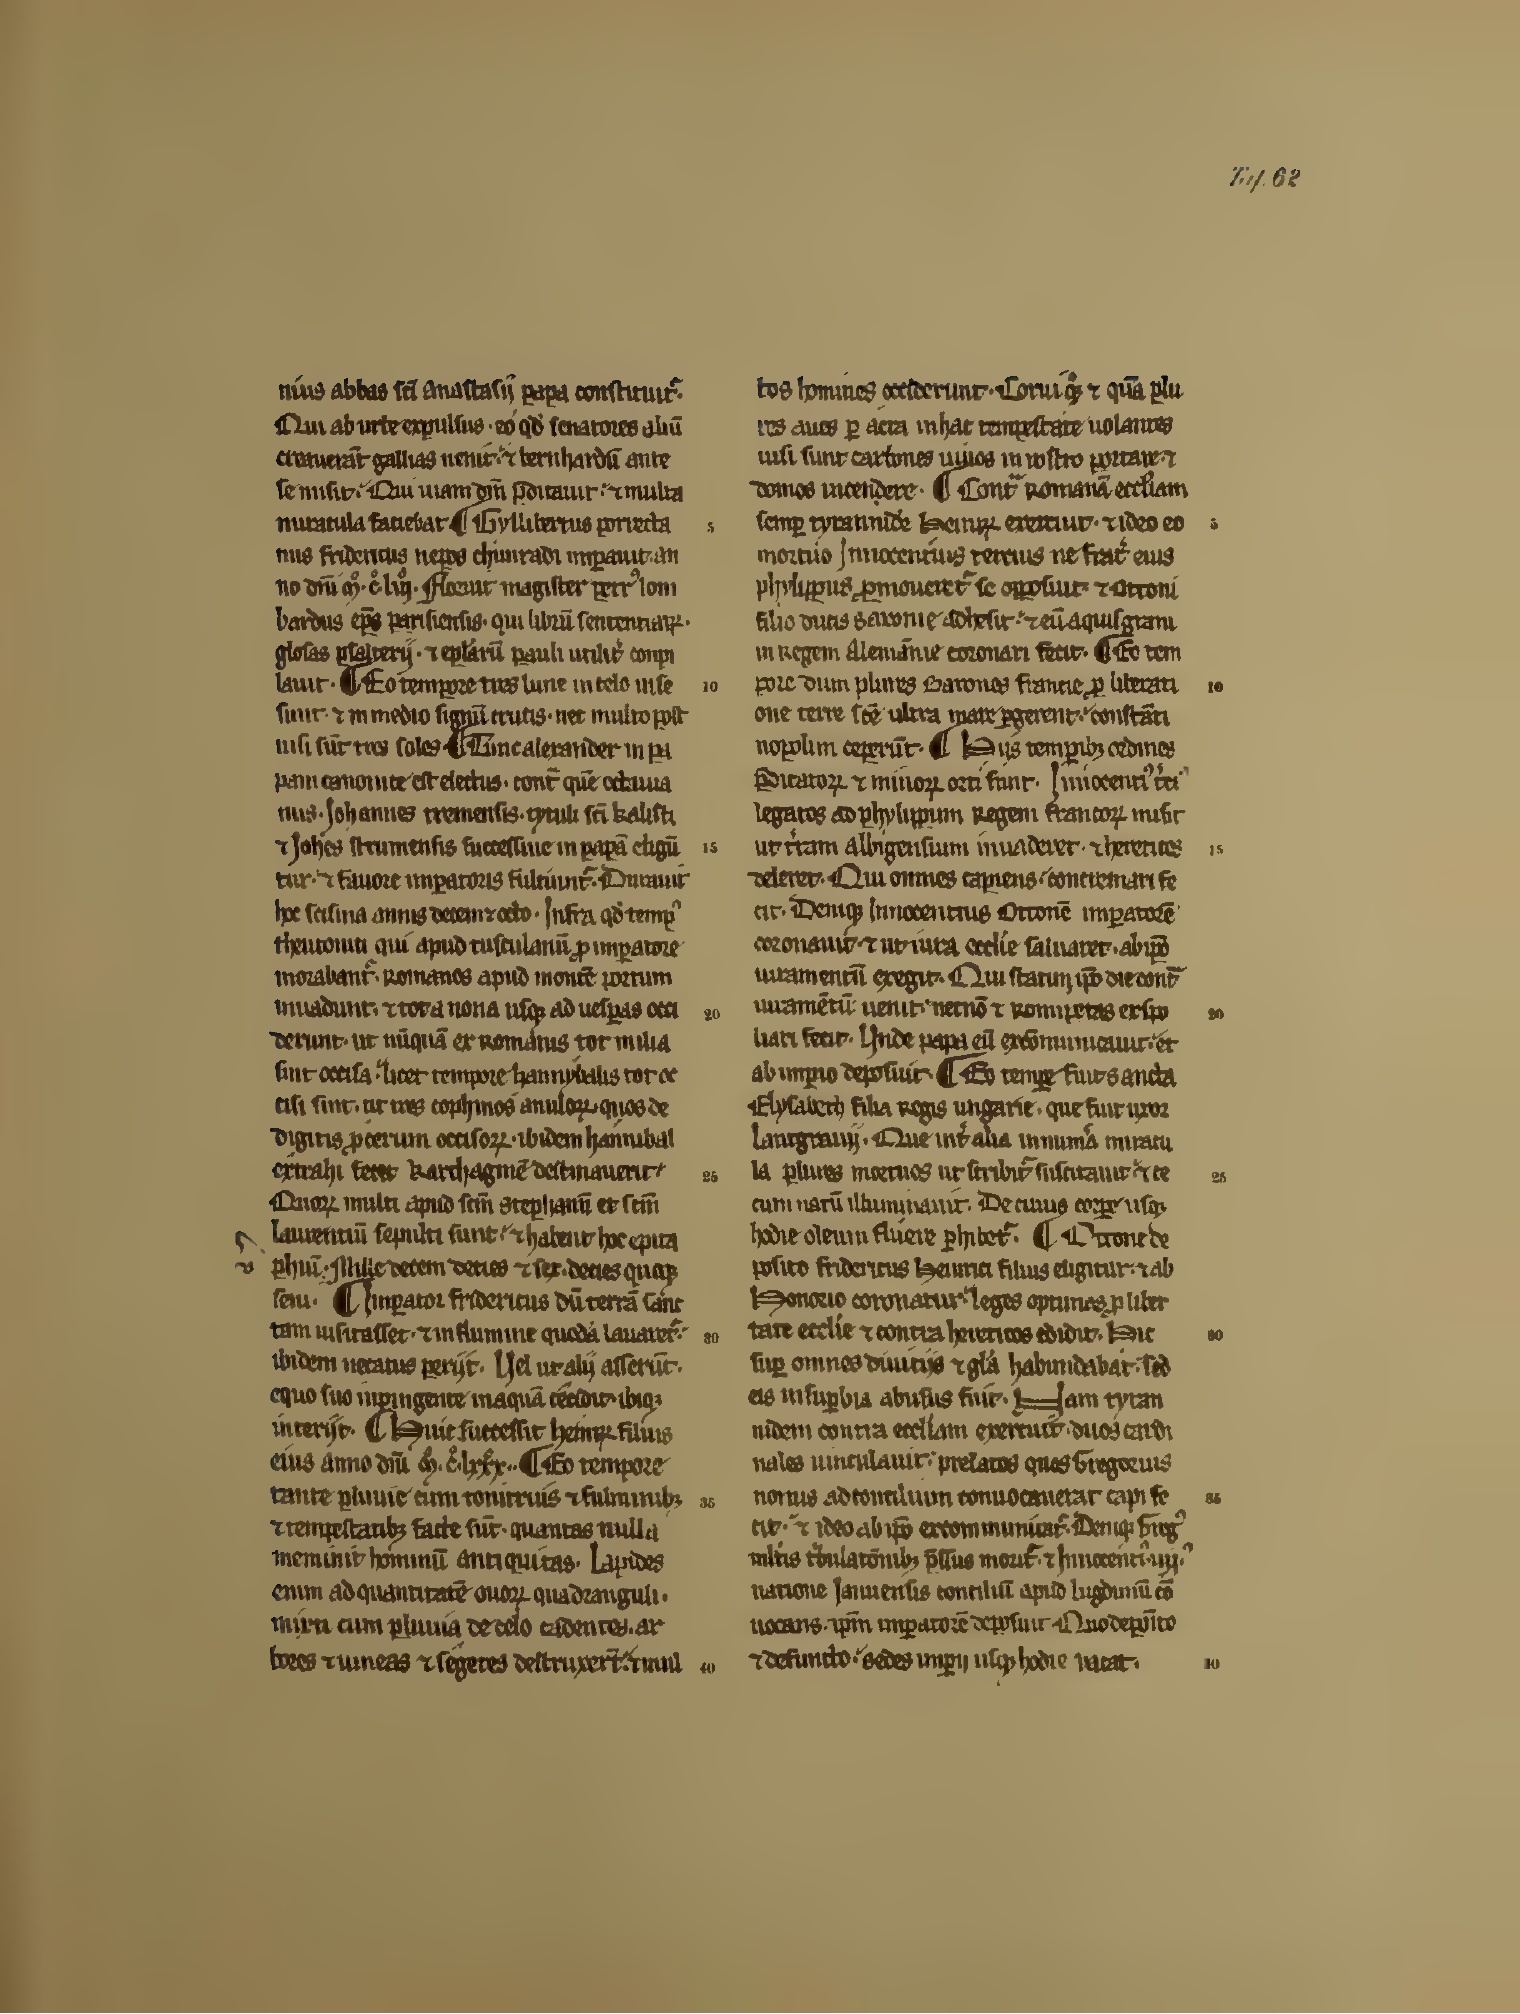 Taf. 62
nius abbas sc̄i Anastasij papa constituit᷑.
Qui ab urbe expulsus. eo qd̛ senatores aliū
creauerāt gallias uenit. ⁊ bernhardū ante
se misit. Qui uiam dn̄i p̄dicauit. ⁊ multa
miracula faciebat. ¶ Gyllibertus porrecta
5
nus fridericus nepos chunradi imꝑauit. an
no dn̄i mͦ. cͦ. liiijͦ. Floruit magister petrꝰ lom
bardus ep̄s parisiensis. qui librū sententiaꝝ.
glosas psalterij. ⁊ ep̄larū pauli utilit̛ conpi
lauit. ¶ Eo tempore tres lune in celo uise
10
sunt. ⁊ in medio signū crucis. nec multo post
uisi sūt tres soles ¶ Tunc alexander in pa
pam canonice est electus. cont᷑ quē octauia
nus. Johannes cremensis. tytuli sc̄i kalisti
⁊ Joh̄es strumensis successiue in papā eligū
15
tur. ⁊ fauore imꝑatoris fulciunt᷑. Durauit
hec scisma annis decem ⁊ octo. Infra qd̛ tempꝰ
theutonici qui apud tusculanū ꝓ imꝑatore
morabant᷑. Romanos apud montē portum
inuadunt. ⁊ tot a nona usqꝫ ad uesꝑas occi
20
derunt. ut nūquā ex Romanis tot milia
sint occisa. licet tempore hannybalis tot oc
cisi sint. ut tres cophinos anuloꝝ. quos de
digitis ꝓcerum occisoꝝ. ibidem hannibal
extrahi fecit karthaginē destinauerit.
25
Quoꝝ multi apud sc̄m Stephanū et sc̄m
laurentiū sepulti sunt. ⁊ habent hoc epyta
phiū. Mille decem decies ⁊ sex decies quoqꝫ
seni. ¶ Imperator fridericus dū terrā sanc
tam uisitasset. ⁊ in flumine quodā lauaret᷑.
30
ibidem necatus perijt. Uel ut alij asserūt.
equo suo inpingente in aquā cecidit. ibiqꝫ
interijt. ¶ Huic successit heinꝝ filius
eius anno dn̄i mͦ. cͦ. lxxx. ¶ Eo tempore
tante pluuie cum tonitruis ⁊ fulminibꝫ
35
⁊ tempestatibꝫ facte sūt. quantas nulla
meminit hominū antiquitas. Lapides
enim ad quantitatē ouoꝝ quadranguli.
mixti cum pluuia de celo cadentes. ar
bores ⁊ uineas ⁊ segetes destruxert̄. ⁊ mul
40
tos homines occiderunt. Corui qͦqꝫ ⁊ qm̄a plu
res aues ꝑ aera in hac tempestate uolantes
uisi sunt carbones uiuos in rostro portare. ⁊
domos incendere. ¶ Cont᷑ Romanā eccl̄iam
semꝑ tyrannidē heinꝝ exercuit. ⁊ ideo eo
5
mortuo Innocentius tercius ne frat̛ eius
phylippus ꝓmoueret᷑ se opposuit. ⁊ Ottoni
filio ducis saxonie adhesit. ⁊ eū aquisgrani
in Regem Alemānie coronari fecit. ¶ Eo tem
pore dum plures Barones francie ꝓ liberati
10
one terre sc̄e ultra mare ꝑgerent. constāti
nopolim ceperūt. ¶ Hijs tempibꝫ ordines
p̄dicatoꝝ ⁊ minoꝝ orti sunt. Innocentiꝰ tc̛iꝰ
legatos ad phylippum Regem francoꝝ misit
ut tr̛am Albigensium inuaderet. ⁊ hereticos
15
deleret. Qui omnes capiens. concremari fe
cit. Deniqꝫ Innocentius Ottonē imꝑatorē
coronauit. ⁊ ut iura eccl̄ie saluaret. ab ip̄o
iuramentū exegit. Qui statim ip̄o die cont᷑
iuramētū uenit. necnō ⁊ Romipetas expo
20
liari fecit. Unde papa eū excōmunicauit. et
ab imꝑio deposuit. ¶ Eo tempe fuit Sancta
Elysabeth filia Regis ungarie. que fuit uxor
lantgrauij. Que int̛ alia innum̄a miracu
la plures mortuos ut scribit᷑ suscitauit. ⁊ ce
25
cum natū illuminauit. De cuius corꝑe usqꝫ
hodie oleum fluere ꝑhibet᷑. ¶ Ottone de
posito fridericus heinrici filius eligitur. ⁊ ab
Honorio coronatur. leges optimas ꝓ liber
tate eccl̄ie ⁊ contra hereticos edidit. Hic
30
suꝑ omnes diuicijs ⁊ gl̄a habundabat. sed
eis in suꝑbia abusus fuit. Nam tyran
nidem contra eccl̄iam exercuit. duos cardi
nales uinculauit. prelatos quos Gregorius
nonus ad concilium conuocauerat capi fe
35
cit. ⁊ ideo ab ip̄o excommunicat᷑. Deniqꝫ Gregꝰ
mltis tribulatōnibꝫ p̄ssus morit᷑. ⁊ Innocentiꝰ iiijꝰ.
natione Januensis conciliū apud lugdunū cō
uocans. ip̄m imꝑatorē deposuit. Quo deposito
⁊ defuncto. sedes imꝑij usqꝫ hodie uacat.
40